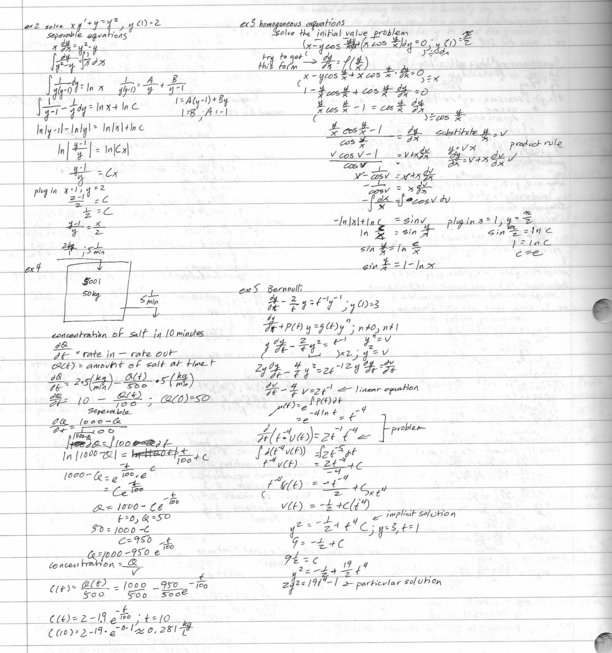 ex 2 solve xy' + y = y², y(1)=2
seperable equations
x dy/dx = y² - y
∫ dy/(y²-y) = ∫ 1/x dx
∫ 1/(y(y-1)) dy = ln x    1/(y(y-1)) = A/y + B/(y-1)
∫ 1/(y-1) - 1/y dy = ln x + ln C    1 = A(y-1) + By
1=B, A=-1
ln|y-1| - ln|y| = ln|x| + ln C
ln|(y-1)/y| = ln|Cx|
(y-1)/y = Cx
plug in x=1, y=2
(2-1)/2 = C
1/2 = C
(y-1)/y = x/2
ex 4
500l
50kg
5 l/min
concentration of salt in 10 minutes
dQ/dt = rate in - rate out
Q(t) = amount of salt at time t
dQ/dt = 2·5 (kg/min) - Q(t)/500 · 5 (kg/min)
dQ/dt = 10 - Q(t)/100 ; Q(0)=50
Seperable
dQ/dt = (1000-Q)/100
ln|1000-Q| = t/100 + C
1000-Q = e^(-t/100) · e^C
= Ce^(-t/100)
Q = 1000 - Ce^(-t/100)
t=0, Q=50
50 = 1000 - C
C = 950
Q = 1000 - 950 e^(-t/100)
concentration = Q/V
C(t) = Q(t)/500 = 1000/500 - 950/500 e^(-t/100)
C(t) = 2 - 1.9 e^(-t/100) ; t = 10
C(10) = 2 - 1.9 · e^(-0.1) ≈ 0.281 kg/L
ex 5 homogeneous equations
Solve the initial value problem
(x - y cos y/x)dx + x cos y/x dy = 0 ; y(1) = π/2
÷dx
try to get this form → dy/dx = f(y/x)
x - y cos y/x + x cos y/x · dy/dx = 0
÷x
1 - y/x cos y/x + cos y/x dy/dx = 0
y/x cos y/x - 1 = cos y/x dy/dx
÷ cos y/x
(y/x cos y/x - 1)/(cos y/x) = dy/dx    substitute y/x = v
(v cos v - 1)/cos v = v + x dv/dx    y = vx    product rule
dy/dx = v + x dv/dx
v - 1/cos v = v + x dv/dx
-1/cos v = x dv/dx
-∫ dx/x = ∫ cos v dv
-ln|x| + ln C = sin v    plug in x=1, y = π/2
ln C/x = sin y/x    sin π/2 = ln C
sin y/x = ln e/x    1 = ln C
C = e
sin y/x = 1 - ln x
ex 5 Bernoulli
dy/dt - 2/t y = t⁻¹ y⁻¹ ; y(1)=3
dy/dt + P(t) y = g(t) yⁿ ; n≠0, n≠1
y dy/dt - 2/t y² = t⁻¹    y² = v
×2 ; y² = v
2y dy/dt - 4/t y² = 2t⁻¹    2y dy/dt = dv/dt
dv/dt - 4/t v = 2t⁻¹ ← linear equation
μ(t) = e^∫P(t)dt
= e^(-4 ln t) = t⁻⁴
d/dt (t⁻⁴ v(t)) = 2t⁻¹ t⁻⁴ ← problem
∫ d(t⁻⁴ v(t)) = ∫ 2t⁻⁵ dt
t⁻⁴ v(t) = 2t⁻⁴/-4 + C
t⁻⁴ v(t) = -t⁻⁴/2 + C ) × t⁴
v(t) = -1/2 + C(t⁴)
← implicit solution
y² = -1/2 + t⁴ C ; y=3, t=1
9 = -1/2 + C
9 1/2 = C
y² = -1/2 + 19/2 t⁴
2y² = 19t⁴ - 1 → particular solution